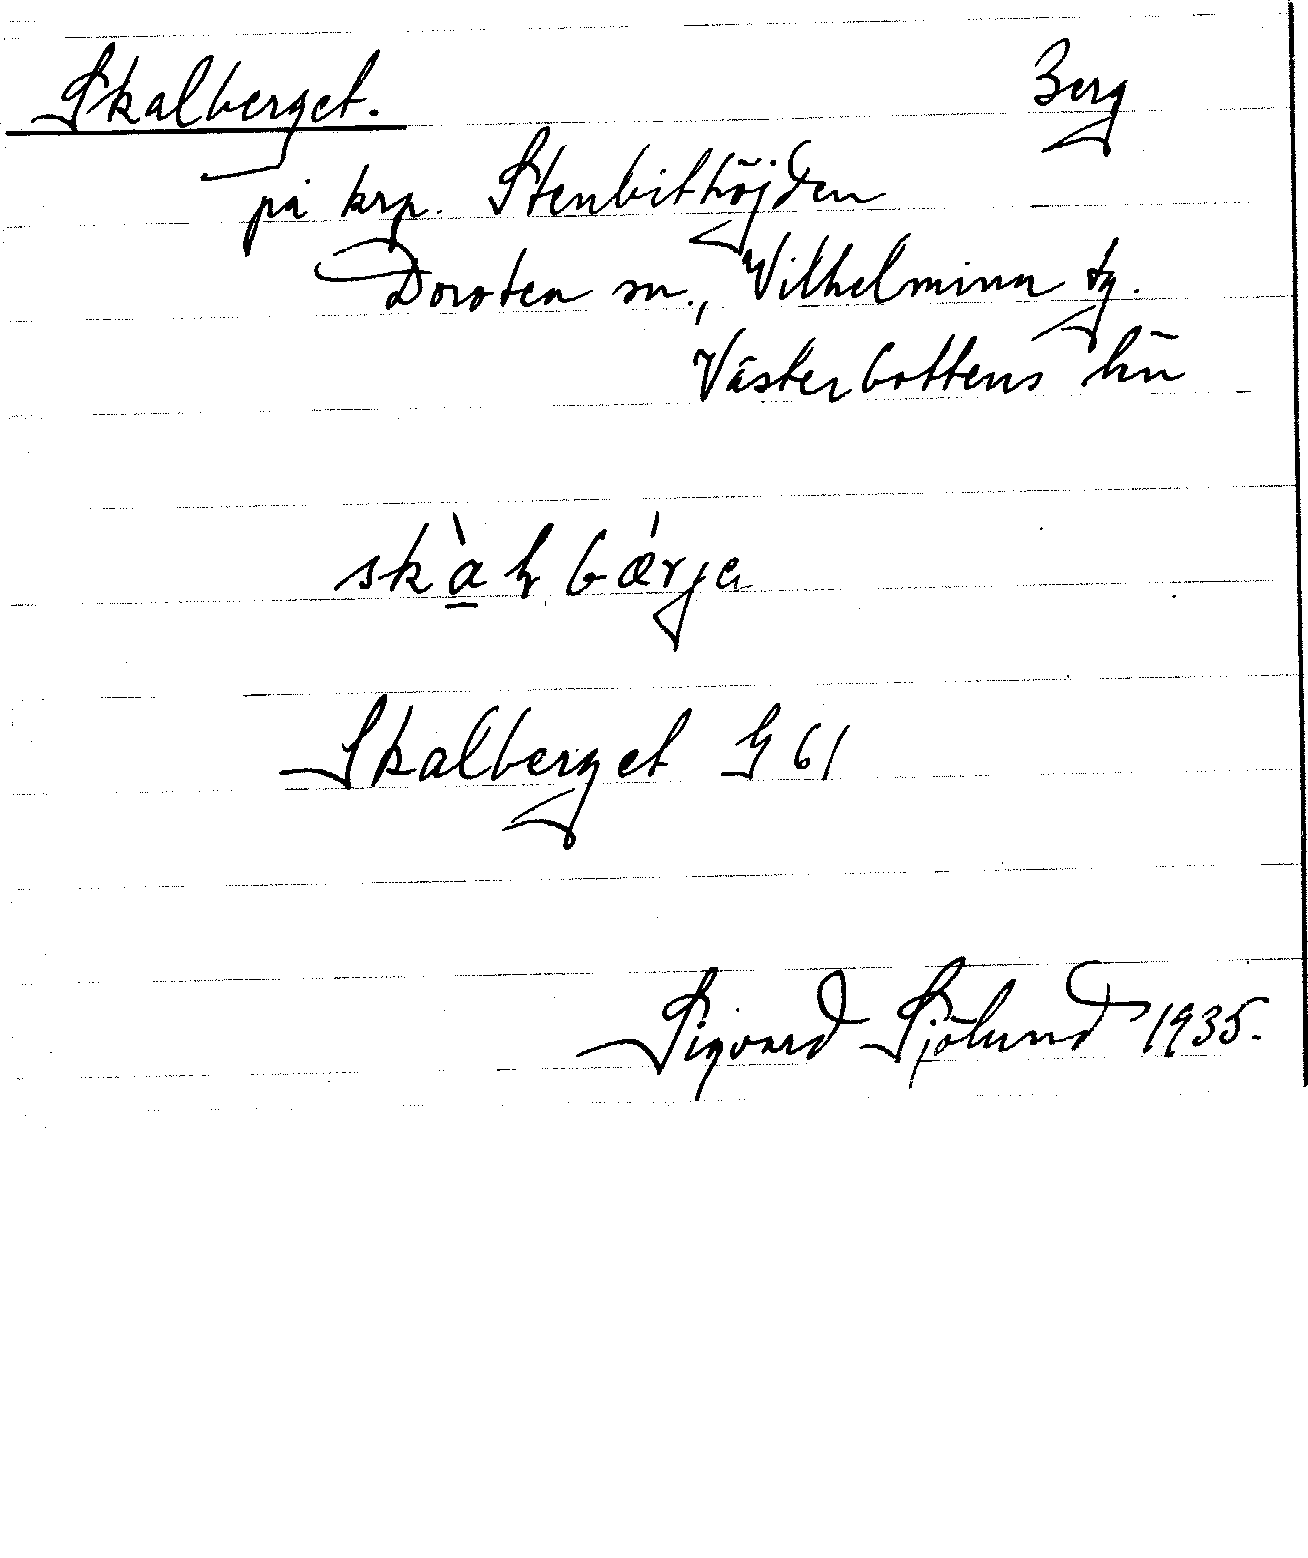 Skalberget. Berg
på krp. Stenbithöjden
Dorotea sn., Vilhelmina tg.
Västerbottens län
Skalberget G 61
Sigvard Sjölund 1935.